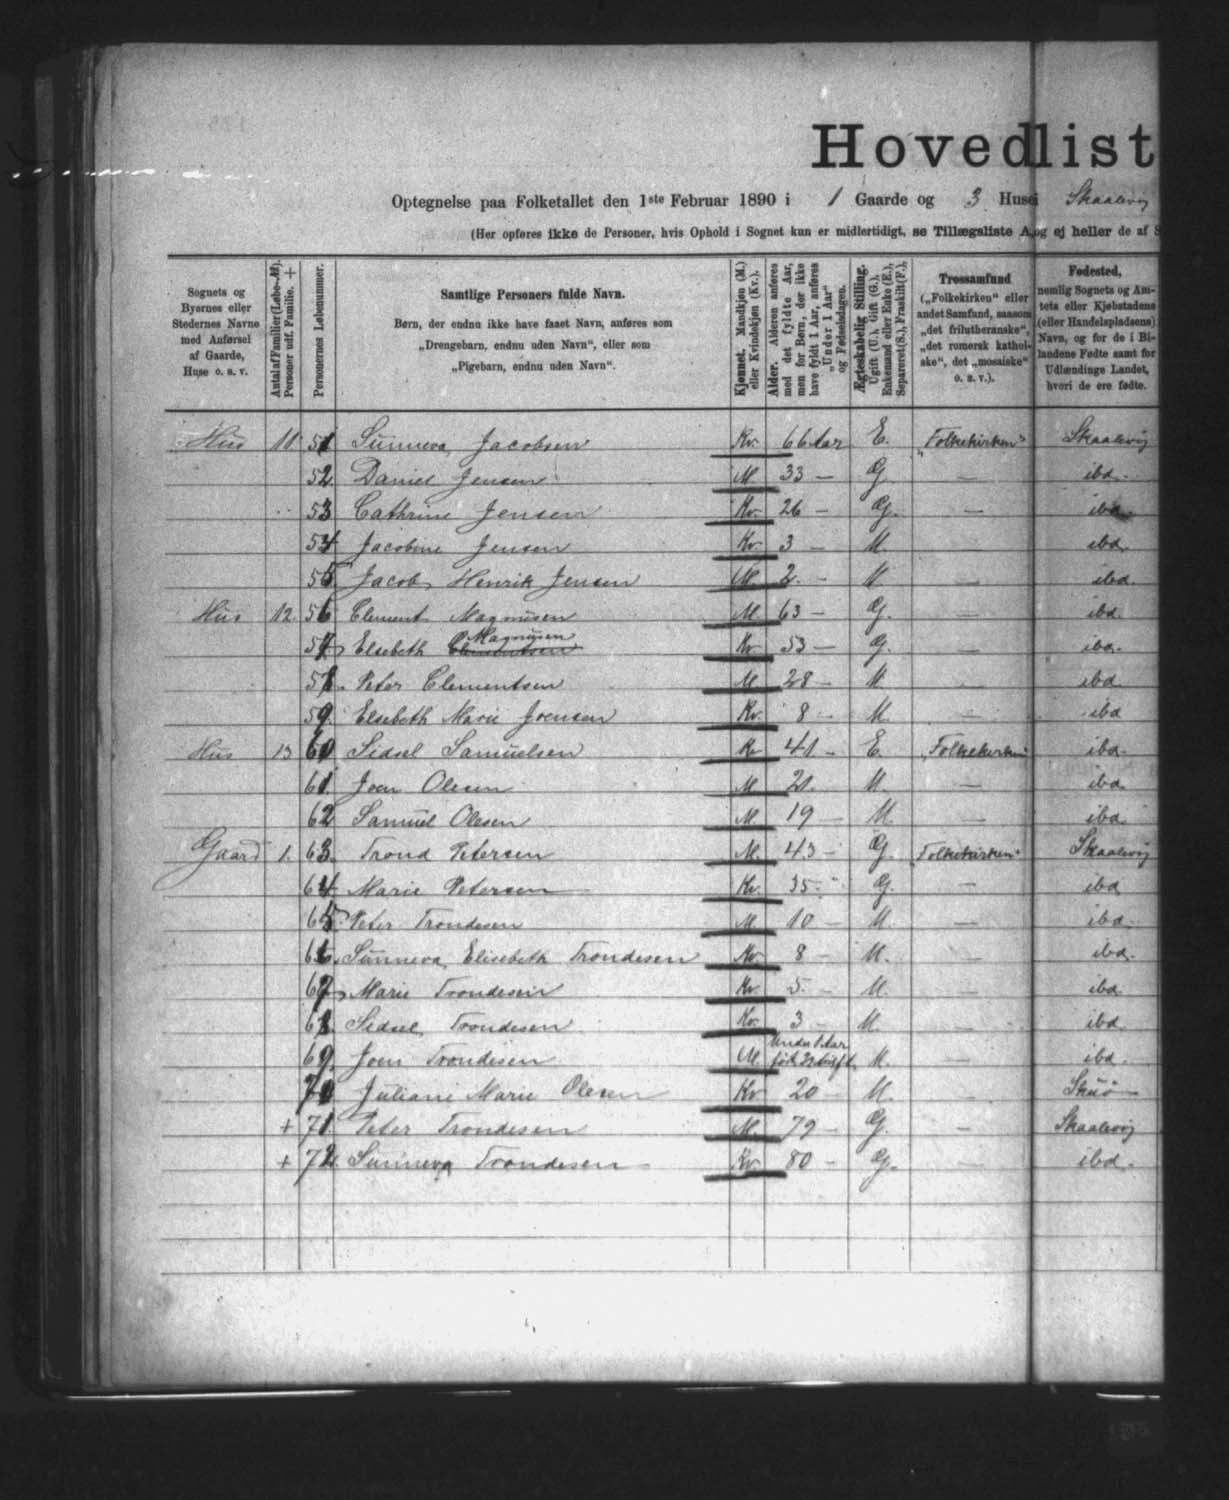 Hovedlist
Optegnelse paa Folketallet den 1ste Februar 1890 i 1 Gaarde og 3 Huse i Skaalevig
(Her opføres ikke de Personer, hvis Ophold i Sognet kun er midlertidigt, se Tillægsliste A, og ej heller de af S
Sognets og Byernes eller Stedernes Navne med Anførsel af Gaarde, Huse o. s. v.
Antal af Familier (Løbe-№). Personer udf. Familie. +
Personernes Løbenummer.
Samtlige Personers fulde Navn.
Børn, der endnu ikke have faaet Navn, anføres som
„Drengebarn, endnu uden Navn“, eller som
„Pigebarn, endnu uden Navn“.
Kjønnet. Mandkjøn (M.) eller Kvindekjøn (Kv.).
Alder. Alderen anføres med det fyldte Aar, men for Børn, der ikke have fyldt 1 Aar, anføres „Under 1 Aar“ og Fødselsdagen.
Ægteskabelig Stilling. Ugift (U.), Gift (G.), Enkemand eller Enke (E.), Separeret (S.), Fraskilt (F.).
Trossamfund („Folkekirken“ eller andet Samfund, saasom „det frilutheranske“, „det romersk katholske“, det „mosaiske“ o. s. v.).
Fødested, nemlig Sognets og Amtets eller Kjøbstadens (eller Handelspladsens) Navn, og for de i Bilandene Fødte samt for Udlændinge Landet, hvori de ere fødte.
Hus 11 51 Sünneva Jacobsen Kv. 66 Aar E. „Folkekirken“ Skaalevig
52 Daniel Jensen M 33 — G. — ibd.
53 Cathrine Jensen Kv. 26 — G. — ibd.
54 Jacobine Jensen Kv. 3 — U. ibd.
55 Jacob Henrik Jensen M. 2 — U. — ibd.
Hus 12 56 Clement Magnüsen M. 63 — G. — ibd.
57 Elsebeth Clementsen Magnüsen Kv. 53 — G. — ibd.
58 Peter Clementsen M. 28 — U. — ibd.
59 Elsebeth Marie Joensen Kv. 8 — U. — ibd
Hus 13 60 Sidsel Samüelsen Kv. 41 — E. „Folkekirken“ ibd.
61 Joen Olesen M 21. U. — ibd.
62 Samüel Olesen M. 19 — U — ibd.
Gaard 1. 63 Trond Petersen M. 43 — G. „Folkekirken“ Skaalevig
64 Marie Petersen Kv. 35 — G. — ibd
65 Peter Trondesen M. 10 — U — ibd.
66 Sünneva Elisebeth Trondesen Kv. 8 — U. — ibd.
67 Marie Trondesen Kv. 5 — U. — ibd.
68 Sidsel Trondesen Kv. 3 — U. — ibd
69 Joen Trondesen M. Under 1 Aar U. — ibd.
70 Juliane Marie Olesen Kv 20 — U. — Skuø
+ 71 Peter Trondesen M. 79 — G. — Skaalevig
+ 72 Sünneva Trondesen Kv. 80 — G. — ibd.